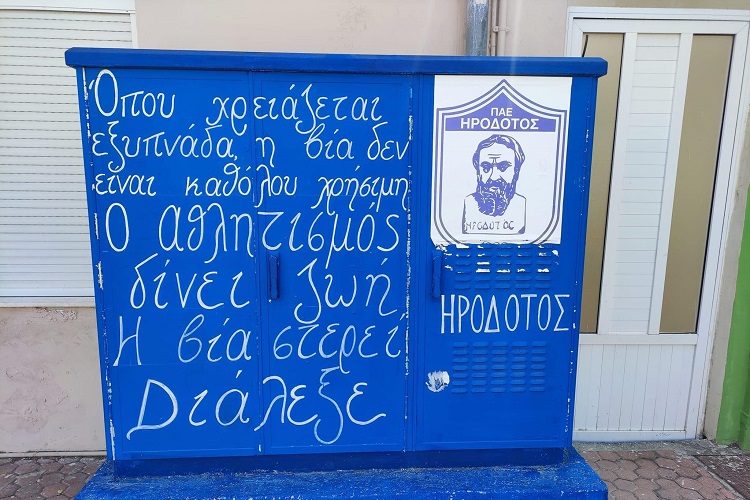 Όπου χρειάζεται
εξυπνάδα, η βία δεν
είναι καθόλου χρήσιμη
Ο αθλητισμός
δίνει ζωή
Η βία στερεί
Διάλεξε
ΠΑΕ
ΗΡΟΔΟΤΟΣ
ΗΡΟΔΟΤΟΣ
ΗΡΟΔΟΤΟΣ